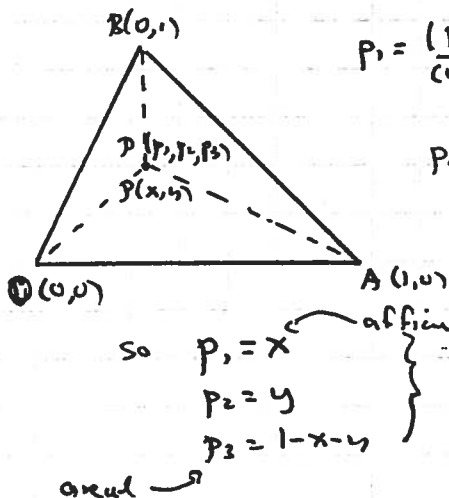 B(0,1)
p₁ =
P (p₁,p₂,p₃)
P(x,y)
(0,0)
A (1,0)
so p₁ = x affine
p₂ = y
p₃ = 1-x-y
areal